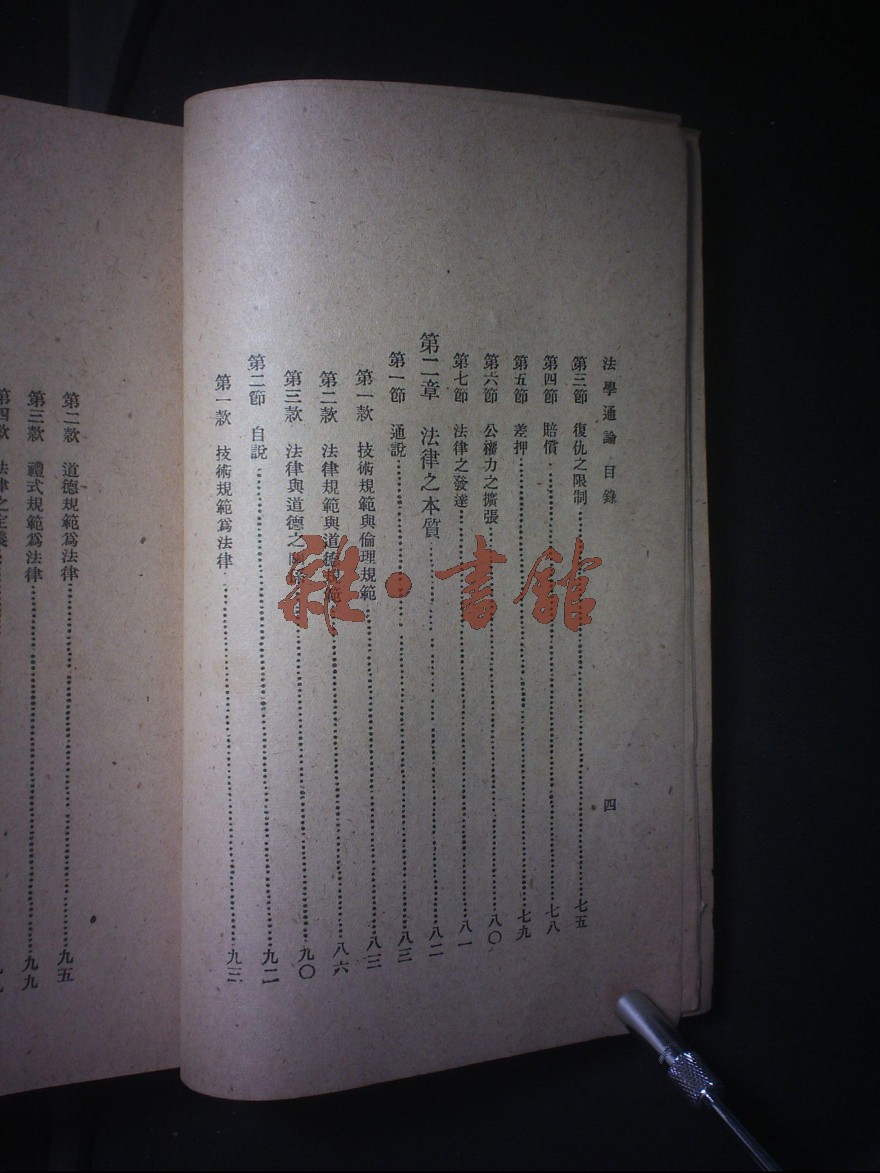 法學通論 目錄 四
第三節 復仇之限制 七五
第四節 賠償 七八
第五節 差押 七九
第六節 公權力之擴張 八〇
第七節 法律之發達 八一
第二章 法律之本質 八二
第一節 通說 八三
第一款 技術規範與倫理規範 八三
第二款 法律規範與道德規範 八六
第三款 法律與道德之關係 九〇
第二節 自說 九二
第一款 技術規範爲法律 九三
第二款 道德規範爲法律 九五
第三款 禮式規範爲法律 九九
第四款 法律之定義
雜·書館